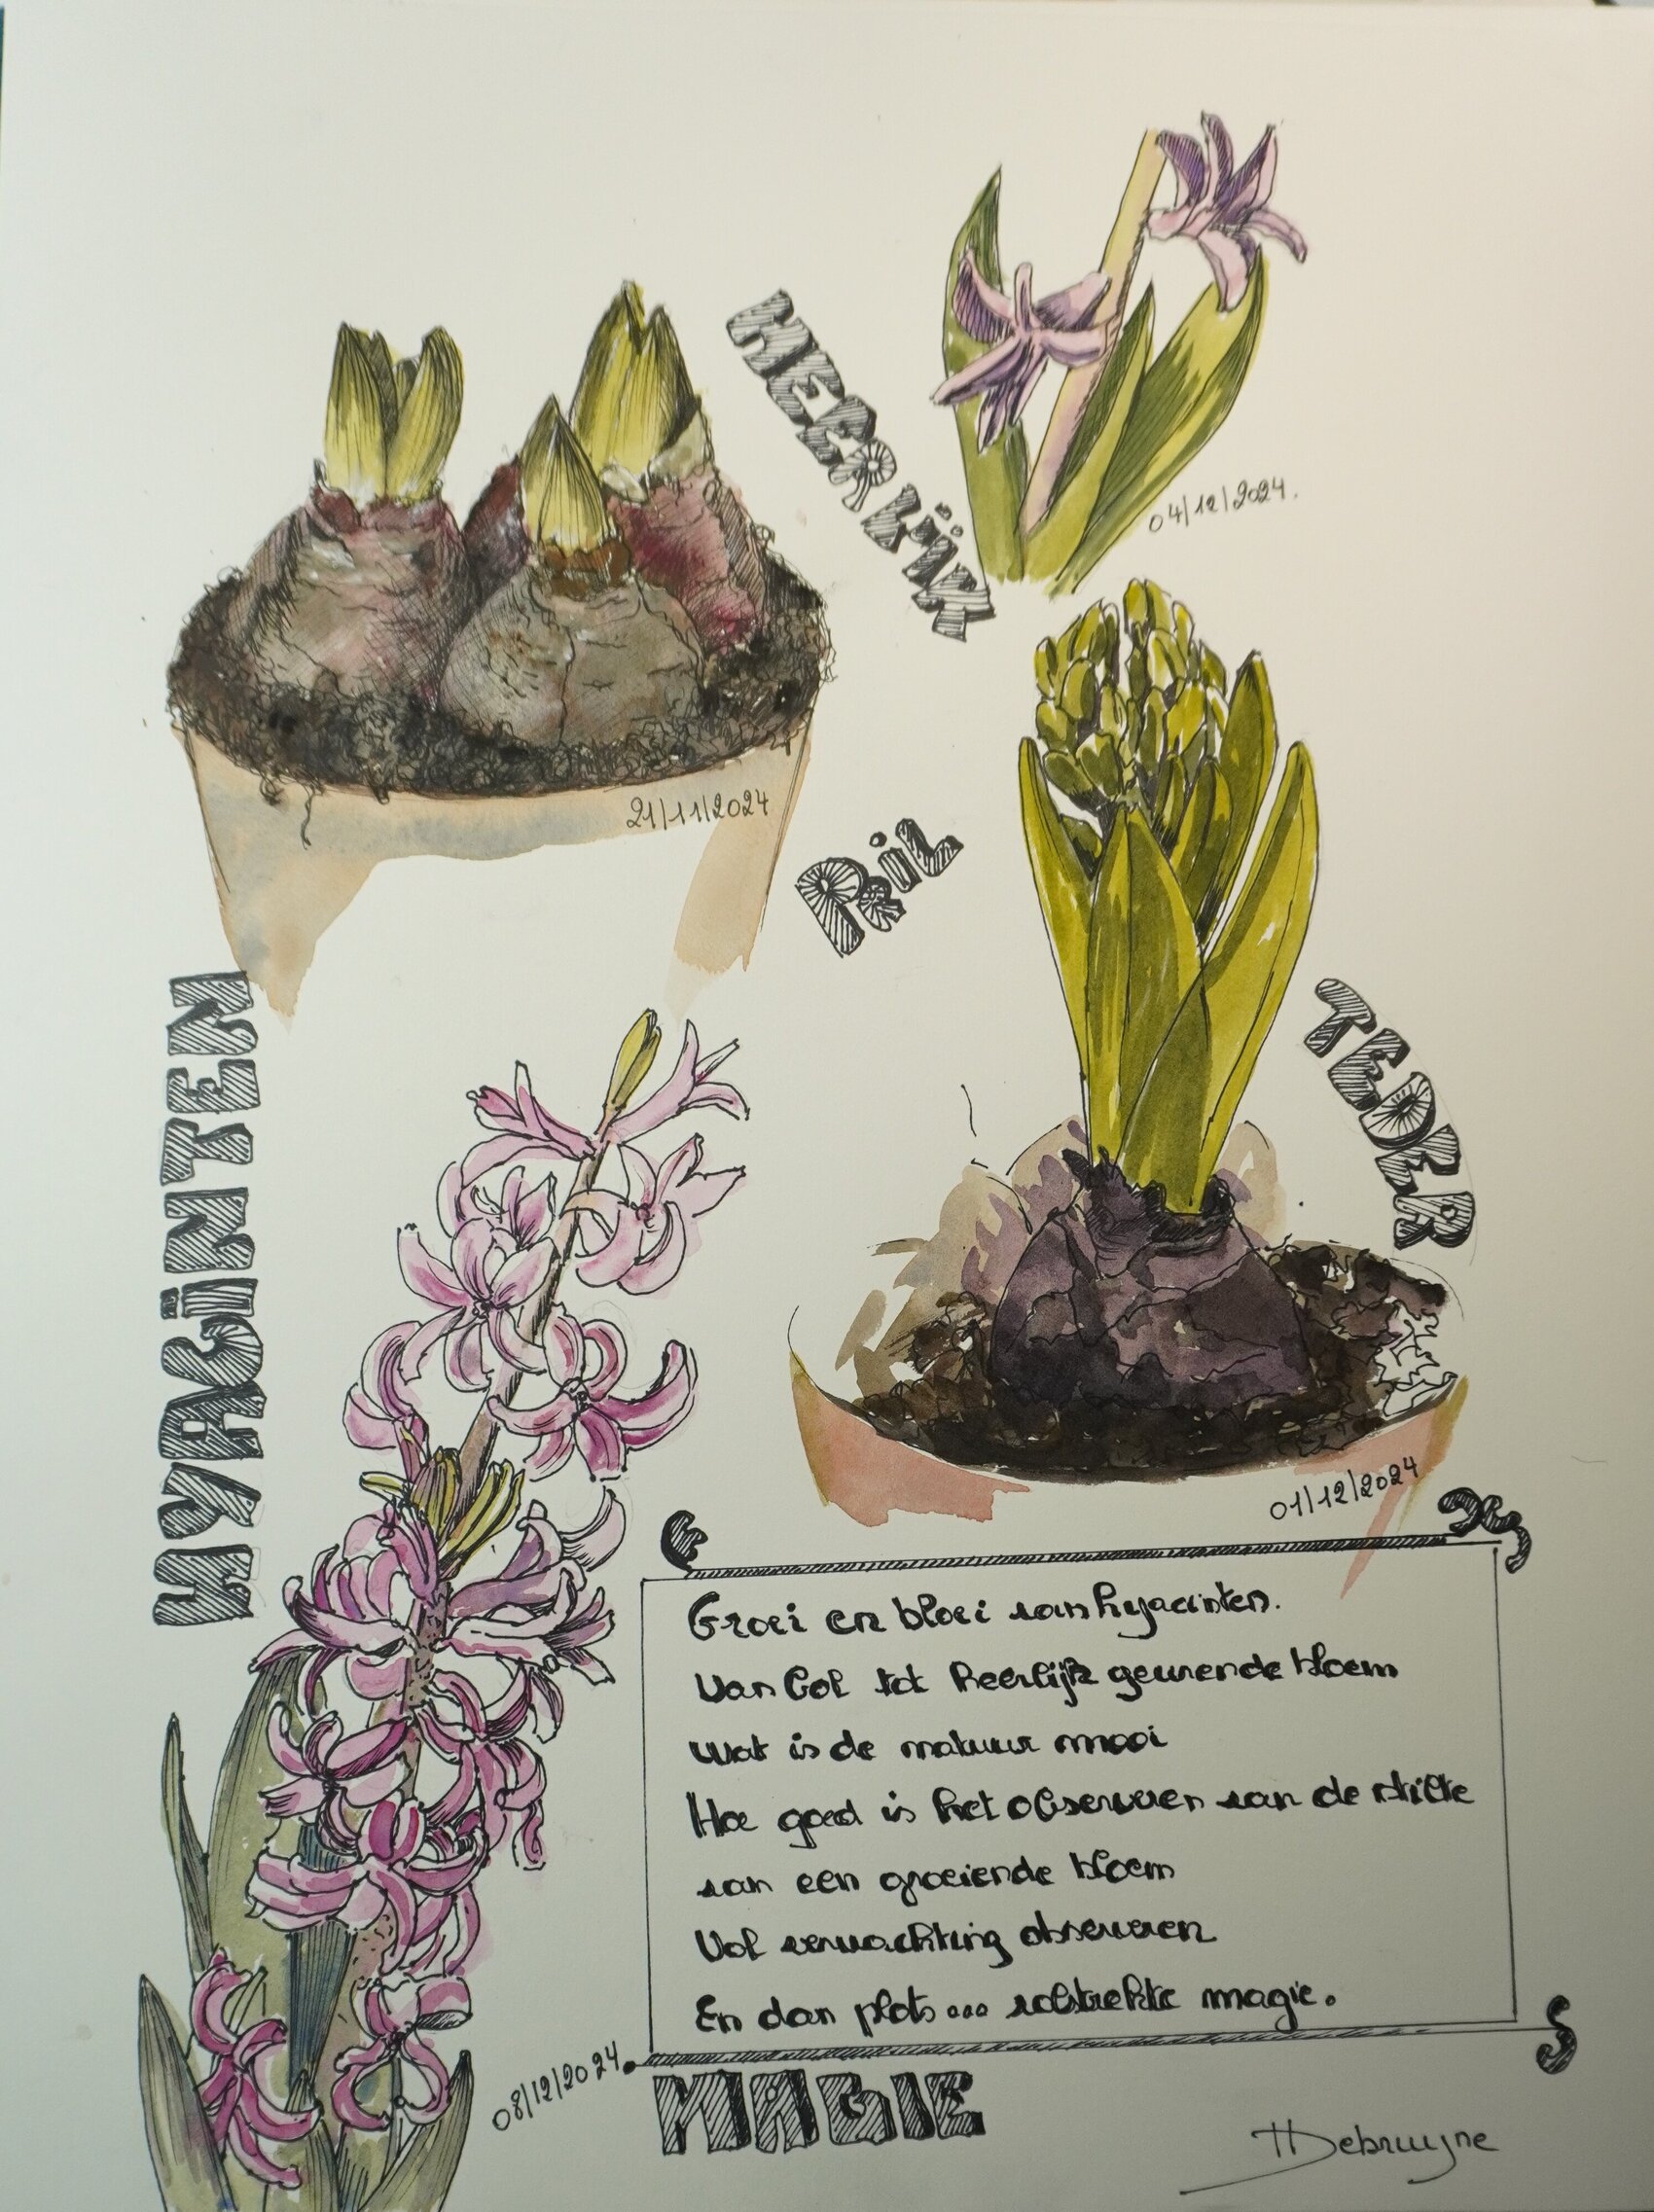 HEERLIJK
04/12/2024.
21/11/2024
PRIL
TEDER
HYACINTEN
01/12/2024
Groei en bloei van hyacinten.
Van bol tot heerlijk geurende bloem
Wat is de natuur mooi
Hoe goed is het observeren van de stilte
van een groeiende bloem
Vol verwachting observeren
En dan plots... volstrekte magie.
08/12/2024
MAGIE
HDebruyne